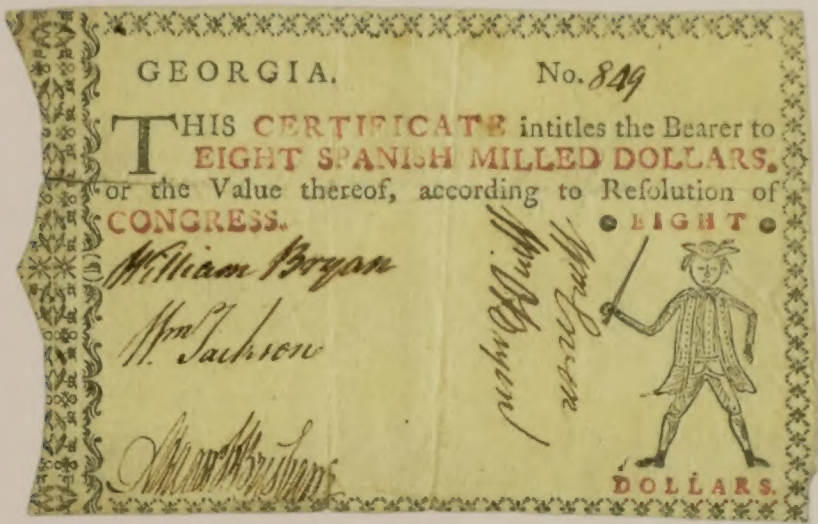 GEORGIA. No. 849
THIS CERTIFICATE intitles the Bearer to
EIGHT SPANISH MILLED DOLLARS,
or the Value thereof, according to Reſolution of
CONGRESS.
EIGHT
William Bryan
Wm Jackson
DOLLARS.